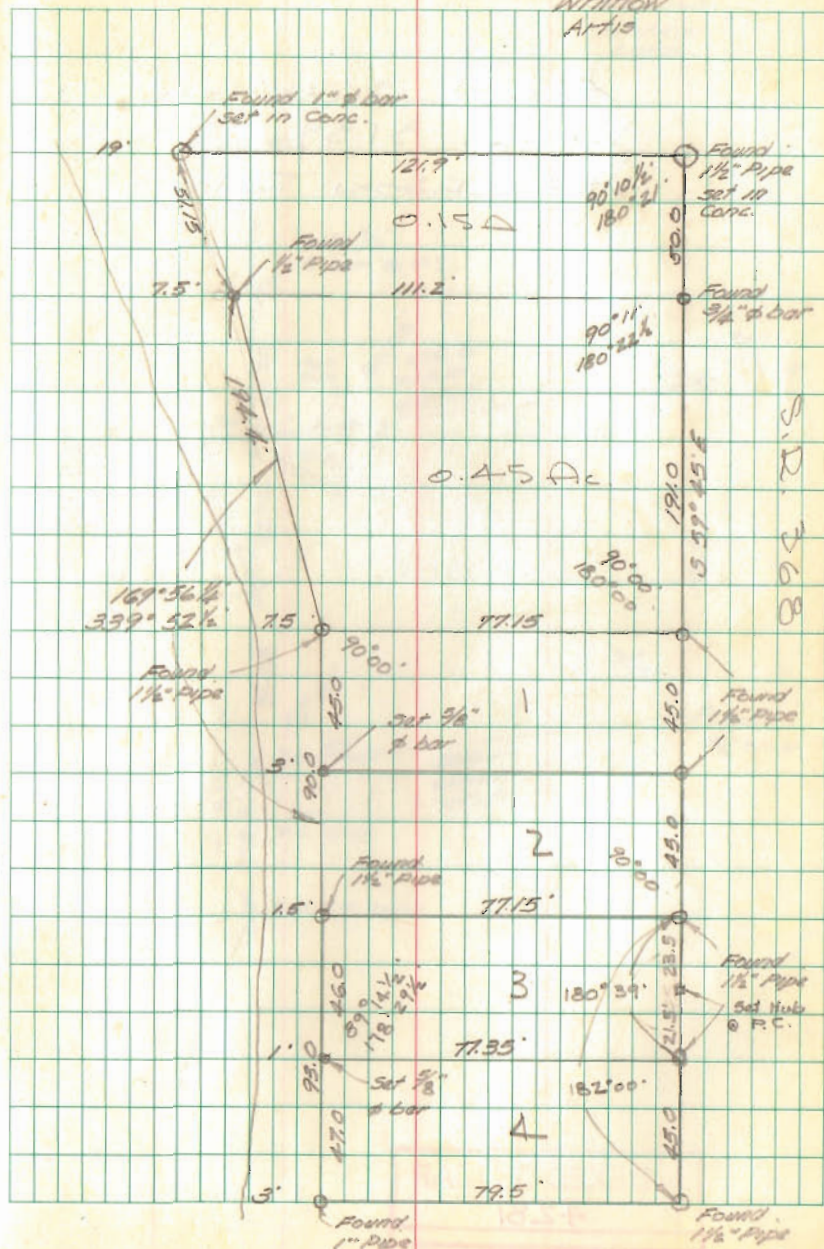 Artis
Found 1" ϕ bar
set in Conc.
19'
121.9'
Found
1½" Pipe
set in
Conc.
90°10½'
180°21'
51.15
0.15 A
50.0
Found
½" Pipe
7.5'
111.2'
Found
¾" ϕ bar
90°11'
180°22½'
194.4'
0.45 Ac.
191.0
S 59° 45' E
S.D. 368
90°00'
180°00'
169°56¼'
339°52½'
7.5'
77.15
90°00'
Found
1½" Pipe
45.0
1
45.0
Found
1½" Pipe
Set 5/8"
ϕ bar
3'
90.0
2
45.0
90°00'
Found
1½" Pipe
1.5'
77.15'
46.0
89° 14½'
178° 29½'
3
180°39'
23.5
Found
1½" Pipe
Set Hub
@ P.C.
21.5'
1'
77.35'
93.0
Set 5/8"
ϕ bar
182°00'
47.0
4
45.0
3'
79.5'
Found
1" Pipe
Found
1½" Pipe